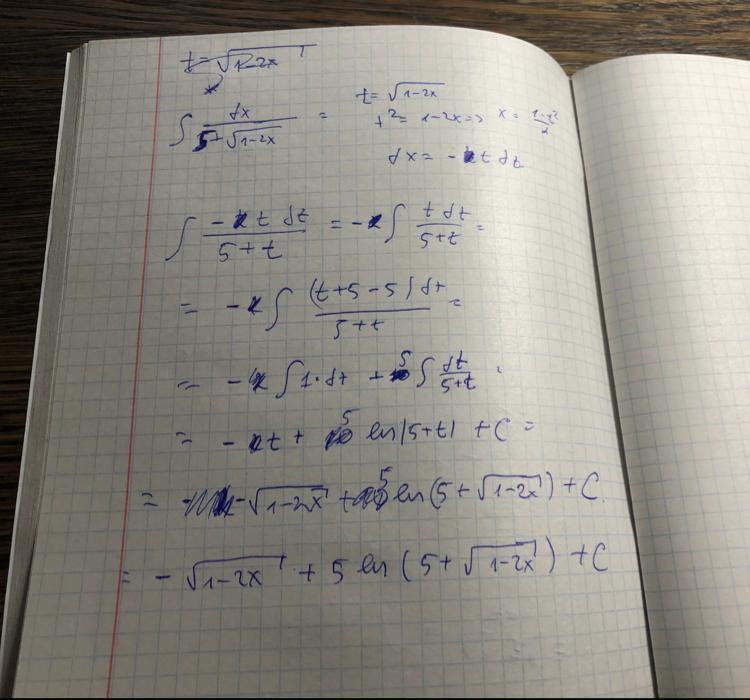 t = √(1-2x)
∫ dx / (5 + √(1-2x)) =
t = √(1-2x)
t² = 1-2x => x = (1-t²)/2
dx = - t dt
∫ (- t dt) / (5+t) = - ∫ (t dt) / (5+t) =
= - ∫ ((t+5-5) dt) / (5+t) =
= - ∫ 1·dt + 5 ∫ dt / (5+t) =
= - t + 5 ln|5+t| + C =
= - √(1-2x) + 5 ln(5 + √(1-2x)) + C
= - √(1-2x) + 5 ln(5 + √(1-2x)) + C